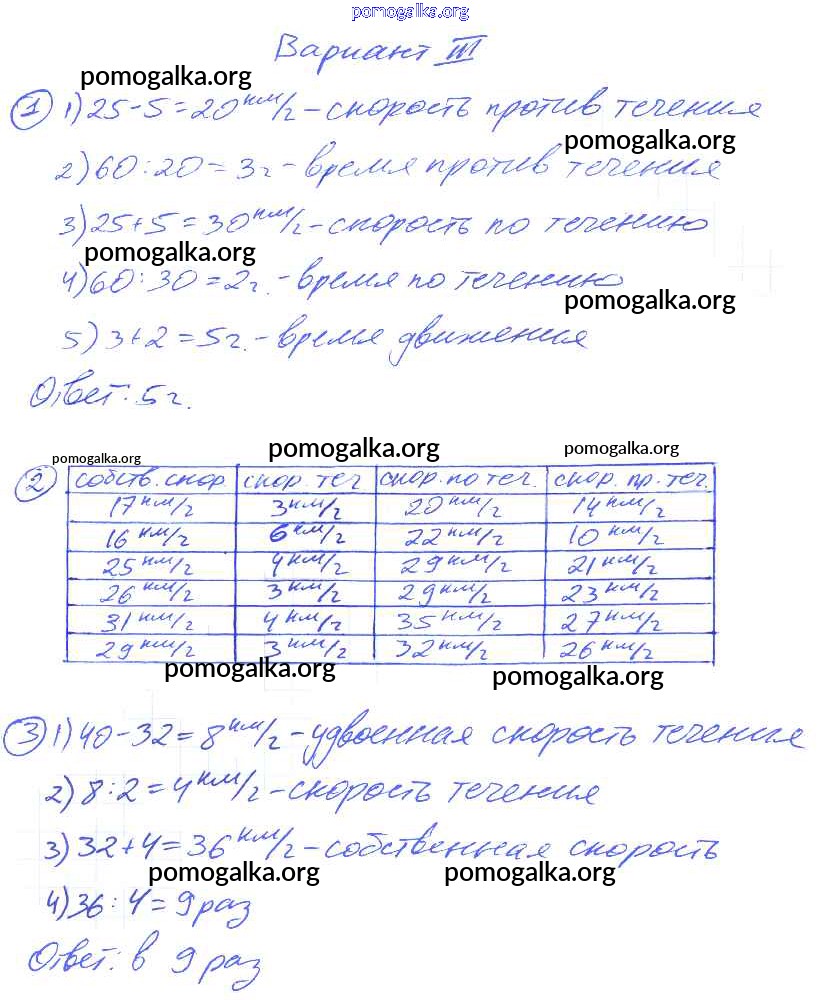 pomogalka.org
Вариант III
pomogalka.org
1 1) 25-5=20 км/г - скорость против течения
pomogalka.org
2) 60:20=3г - время против течения
3) 25+5=30 км/г - скорость по течению
pomogalka.org
4) 60:30=2г. - время по течению
pomogalka.org
5) 3+2=5г. - время движения
Ответ: 5г.
pomogalka.org pomogalka.org pomogalka.org
2 собств. скор. скор. теч скор. по теч. скор. пр. теч.
17 км/г 3 км/г 20 км/г 14 км/г
16 км/г 6 км/г 22 км/г 10 км/г
25 км/г 4 км/г 29 км/г 21 км/г
26 км/г 3 км/г 29 км/г 23 км/г
31 км/г 4 км/г 35 км/г 27 км/г
29 км/г 3 км/г 32 км/г 26 км/г
pomogalka.org pomogalka.org
3 1) 40-32=8 км/г - удвоенная скорость течения
2) 8:2=4 км/г - скорость течения
3) 32+4=36 км/г - собственная скорость
pomogalka.org pomogalka.org
4) 36:4=9 раз
Ответ: в 9 раз